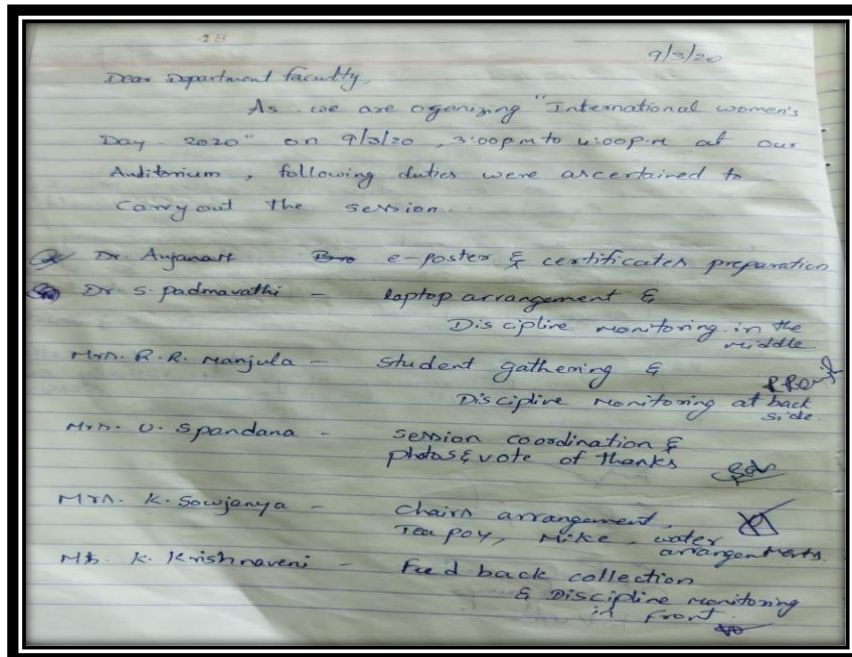 18
9/3/20
Dear Department faculty,
As we are oganizing "International women's
Day - 2020" on 9/3/20, 3:00pm to 4:00p.m at our
Auditorium, following duties were ascertained to
Carry out the session.
Dr. e-poster & certificates preparation
Dr. S. padmavathi - laptop arrangement &
Discipline monitoring in the
middle
Mrs. R.R. Manjula - student gathering &
Discipline monitoring at back
side.
Mrs. U. Spandana - session coordination &
photos & vote of thanks
Mrs. K. Sowjanya - Chairs arrangement,
Tea poy, Mike, water
arrangements.
Ms. K. Krishnaveni - Feed back collection
& Discipline monitoring
in Front.